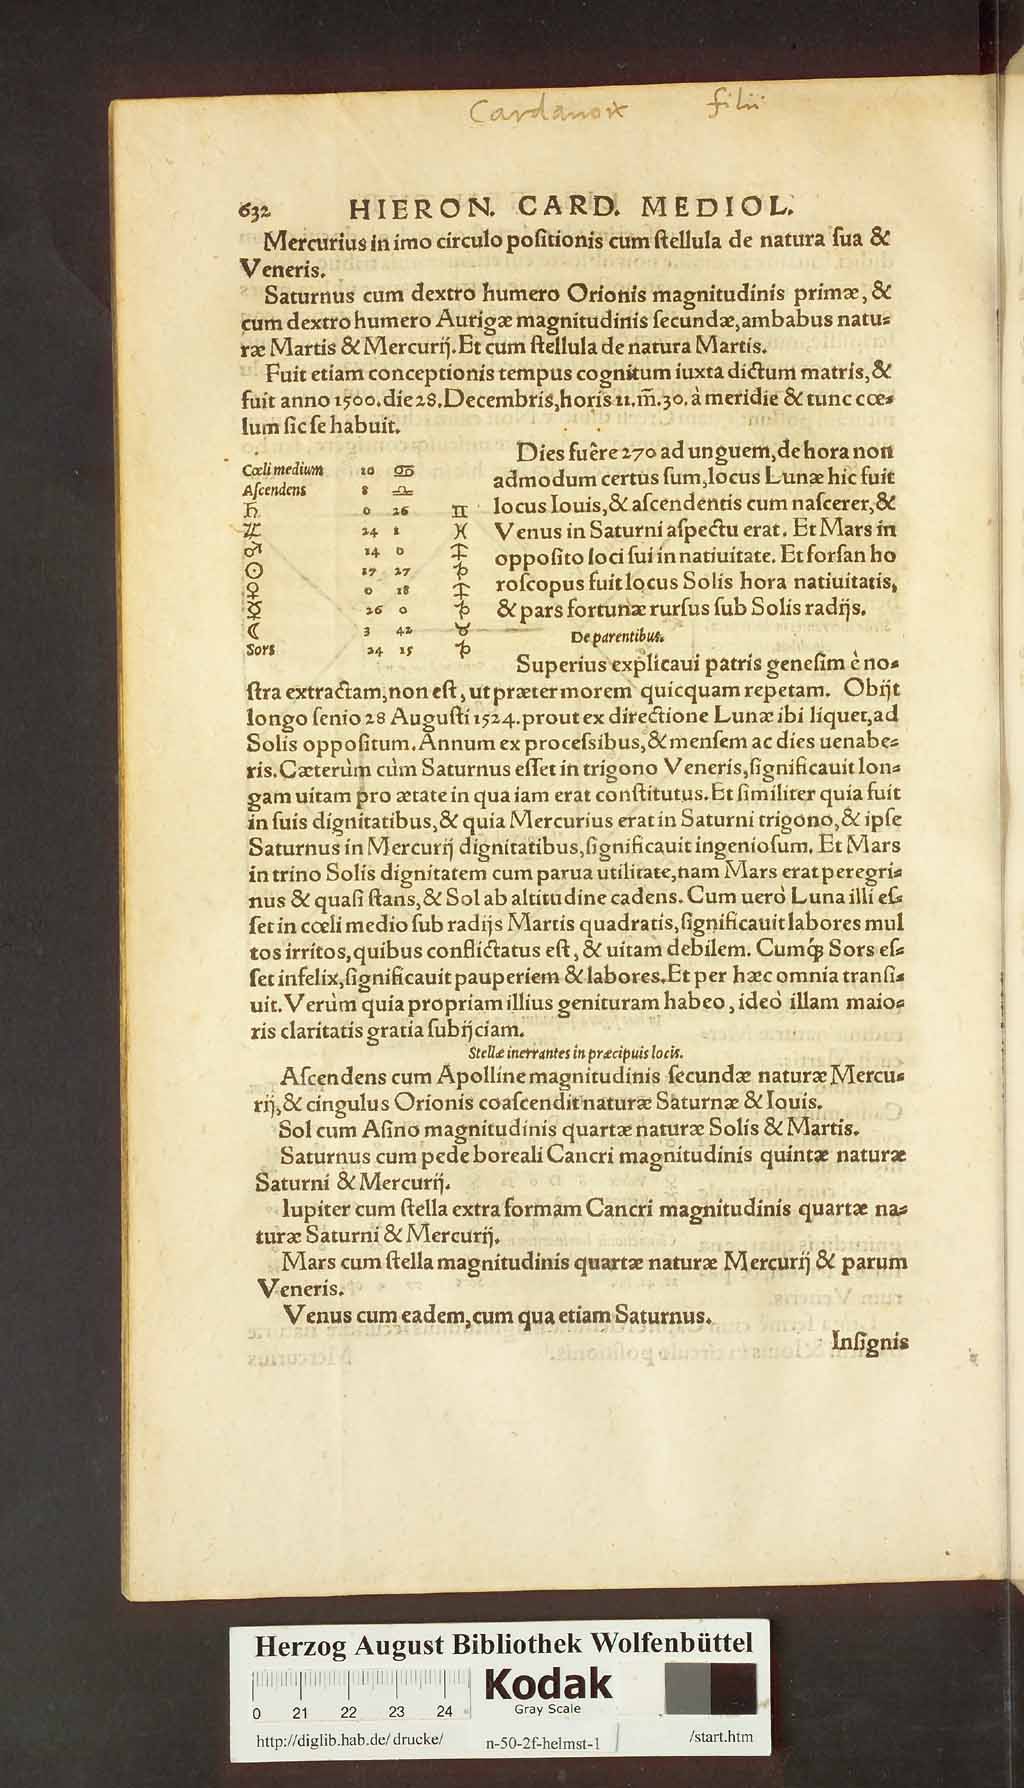 Cardanor filii
632 HIERON. CARD. MEDIOL.
Mercurius in imo circulo poſitionis cum ſtellula de natura ſua &
Veneris.
Saturnus cum dextro humero Orionis magnitudinis primæ, &
cum dextro humero Aurigæ magnitudinis ſecundæ, ambabus natu⸗
ræ Martis & Mercurij. Et cum ſtellula de natura Martis.
Fuit etiam conceptionis tempus cognitum iuxta dictum matris, &
fuit anno 1500. die 28. Decembris, horis 11. m̃. 30. à meridie & tunc cœ⸗
lum ſic ſe habuit.
Cœli medium 10 ♋
Aſcendens 8 ♎
♄ 0 26 ♊
♃ 24 1 ♓
♂ 14 0 ♐
☉ 17 27 ♑
♀ 0 18 ♐
☿ 26 0 ♑
☾ 3 42 ♉
Sors 24 15 ♑
Dies fuêre 270 ad unguem, de hora non
admodum certus ſum, locus Lunæ hic fuit
locus Iouis, & aſcendentis cum naſcerer, &
Venus in Saturni aſpectu erat. Et Mars in
oppoſito loci ſui in natiuitate. Et forſan ho
roſcopus fuit locus Solis hora natiuitatis,
& pars fortunæ rurſus ſub Solis radijs.
De parentibus.
Superius explicaui patris geneſim è no⸗
ſtra extractam, non eſt, ut præter morem quicquam repetam. Obijt
longo ſenio 28 Auguſti 1524. prout ex directione Lunæ ibi liquet, ad
Solis oppoſitum. Annum ex proceſsibus, & menſem ac dies uenabe⸗
ris. Cæterùm cùm Saturnus eſſet in trigono Veneris, ſignificauit lon⸗
gam uitam pro ætate in qua iam erat conſtitutus. Et ſimiliter quia fuit
in ſuis dignitatibus, & quia Mercurius erat in Saturni trigono, & ipſe
Saturnus in Mercurij dignitatibus, ſignificauit ingenioſum. Et Mars
in trino Solis dignitatem cum parua utilitate, nam Mars erat peregri⸗
nus & quaſi ſtans, & Sol ab altitudine cadens. Cum uerò Luna illi eſ⸗
ſet in cœli medio ſub radijs Martis quadratis, ſignificauit labores mul
tos irritos, quibus conflictatus eſt, & uitam debilem. Cumq́; Sors eſ⸗
ſet infelix, ſignificauit pauperiem & labores. Et per hæc omnia tranſi⸗
uit. Verùm quia propriam illius genituram habeo, ideò illam maio⸗
ris claritatis gratia ſubijciam.
Stellæ inerrantes in præcipuis locis.
Aſcendens cum Apolline magnitudinis ſecundæ naturæ Mercu⸗
rij, & cingulus Orionis coaſcendit naturæ Saturnæ & Iouis.
Sol cum Aſino magnitudinis quartæ naturæ Solis & Martis.
Saturnus cum pede boreali Cancri magnitudinis quintæ naturæ
Saturni & Mercurij.
Iupiter cum ſtella extra formam Cancri magnitudinis quartæ na⸗
turæ Saturni & Mercurij.
Mars cum ſtella magnitudinis quartæ naturæ Mercurij & parum
Veneris.
Venus cum eadem, cum qua etiam Saturnus.
Inſignis
Herzog August Bibliothek Wolfenbüttel
Kodak
Gray Scale
0 21 22 23 24
http://diglib.hab.de/drucke/ n-50-2f-helmst-1 /start.htm